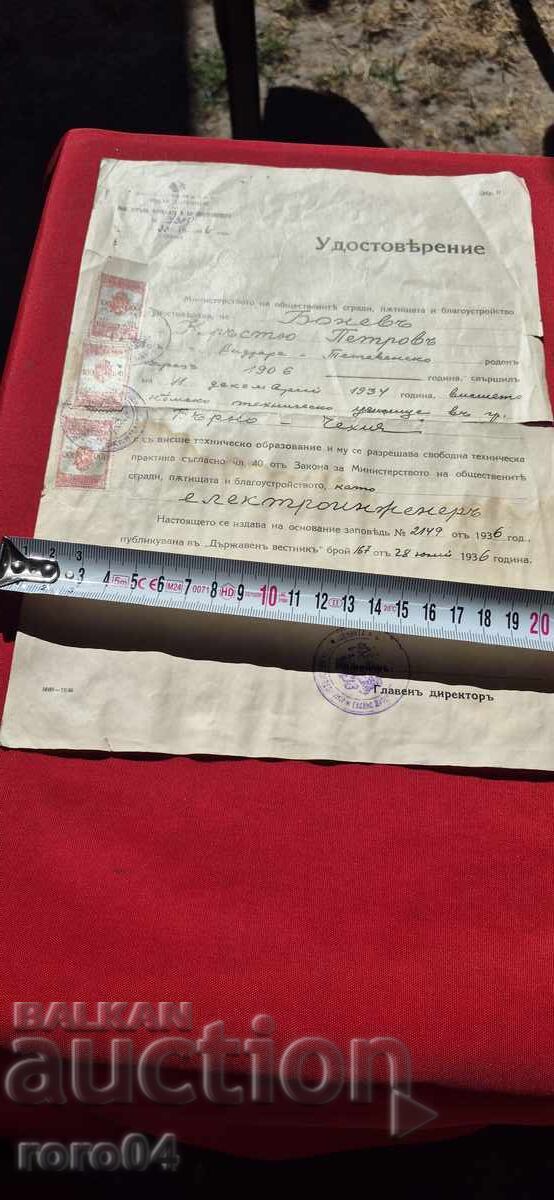 Обр. II
Удостовѣрение
Министерството на общественитѣ сгради, пѫтищата и благоустройство
удостовѣрява, че Боневъ
Кръстю Петровъ
роденъ
презъ 1906 година, свършилъ
на 11 декемврий 1934 година, висшето
техническо училище въ гр.
Бърно - Чехия
е съ висше техническо образование и му се разрешава свободна техническа
практика съгласно чл. 40 отъ Закона за Министерството на общественитѣ
сгради, пѫтищата и благоустройството, като
електроинженеръ
Настоящето се издава на основание заповѣдь № 2149 отъ 1936 год.,
публикувана въ „Държавенъ вестникъ" брой 167 отъ 28 юлий 1936 година.
1 2 3 4 5m 5 CE 6 M24 7 0071 8 HD 9 10 11 12 II 13 14 20°C 15 16 17 18 19 20
Главенъ директоръ
BALKAN
auction
roro04